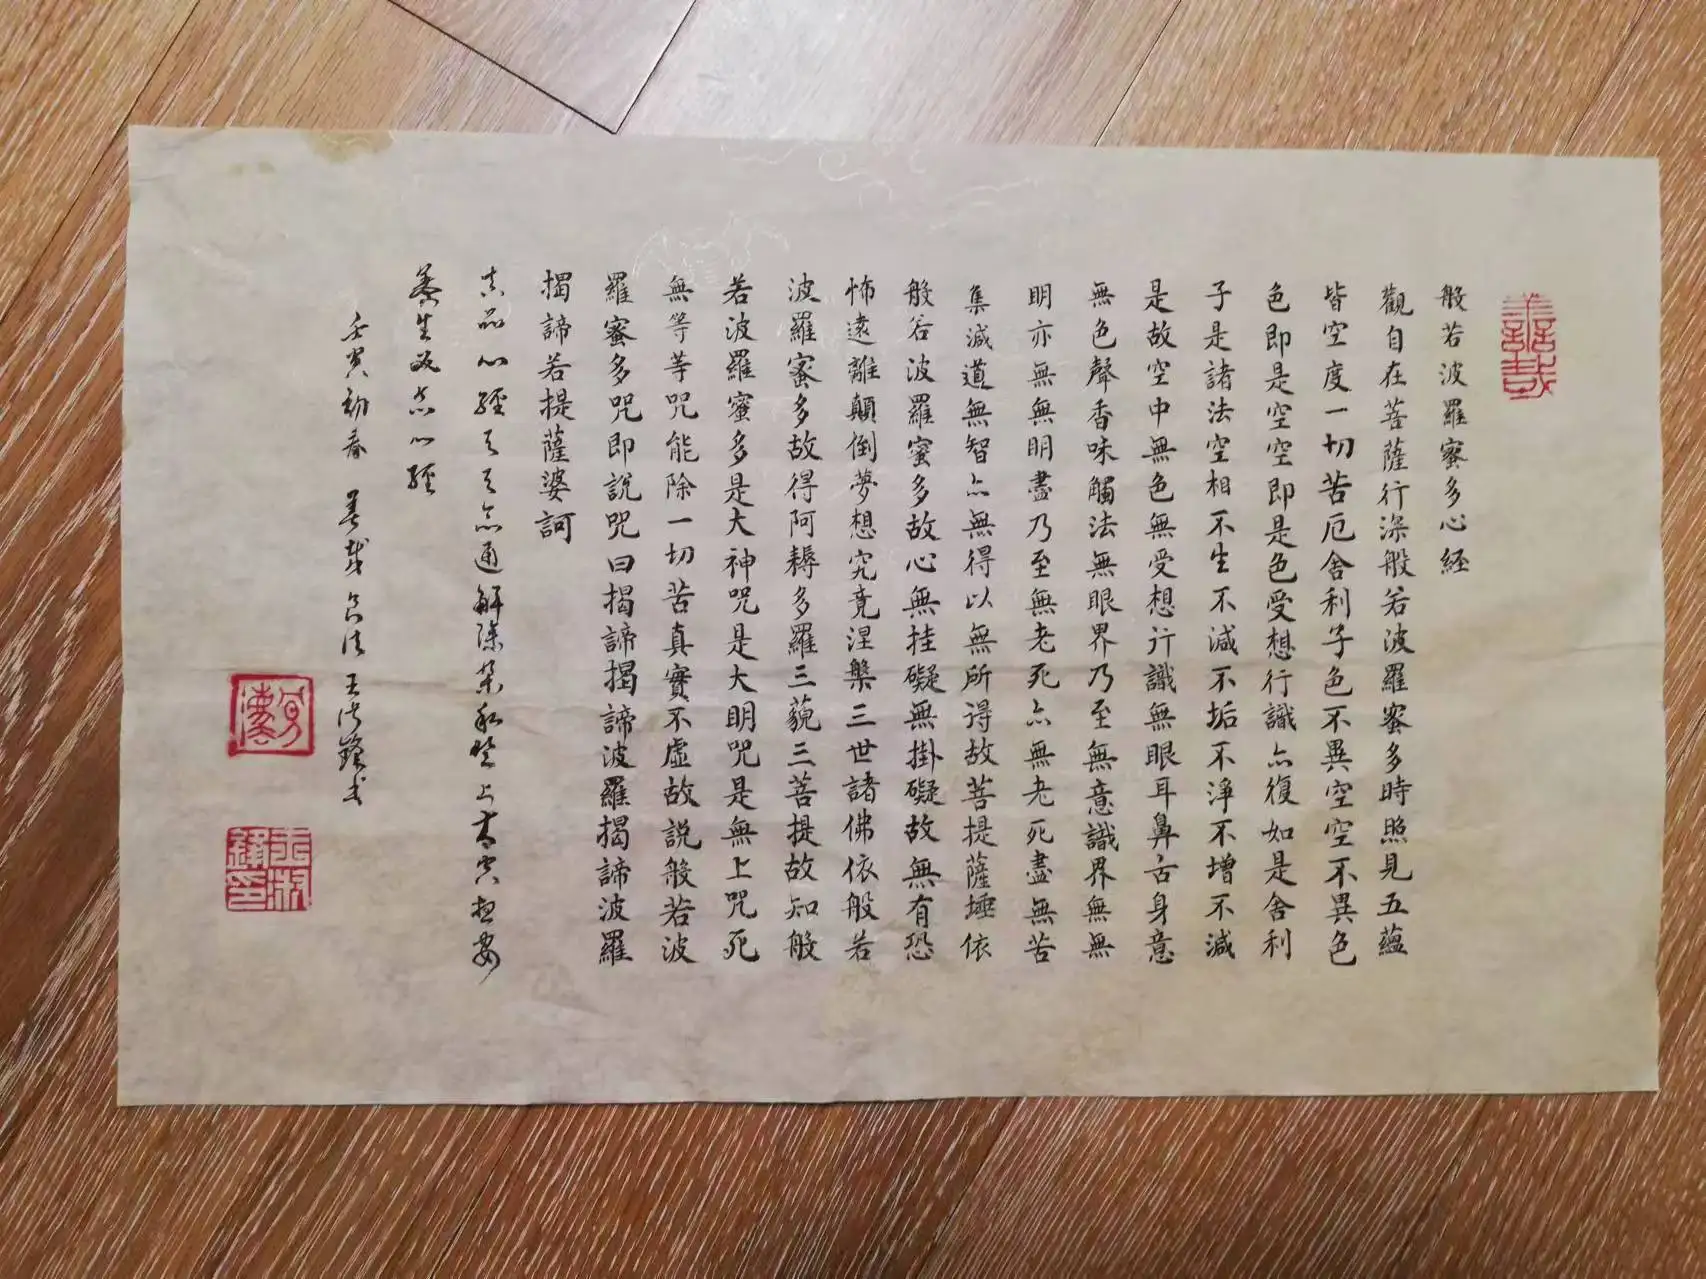 善哉
般若波羅蜜多心経
觀自在菩薩行深般若波羅蜜多時照見五蘊
皆空度一切苦厄舍利子色不異空空不異色
色即是空空即是色受想行識亦復如是舍利
子是諸法空相不生不滅不垢不淨不增不減
是故空中無色無受想行識無眼耳鼻舌身意
無色聲香味觸法無眼界乃至無意識界無無
明亦無無明盡乃至無老死亦無老死盡無苦
集滅道無智亦無得以無所得故菩提薩埵依
般若波羅蜜多故心無挂礙無掛礙故無有恐
怖遠離顛倒夢想究竟涅槃三世諸佛依般若
波羅蜜多故得阿耨多羅三藐三菩提故知般
若波羅蜜多是大神咒是大明咒是無上咒死
無等等咒能除一切苦真實不虛故説般若波
羅蜜多咒即說咒曰揭諦揭諦波羅揭諦波羅
揭諦若提薩婆訶
心經 通解除
心經
壬寅初春